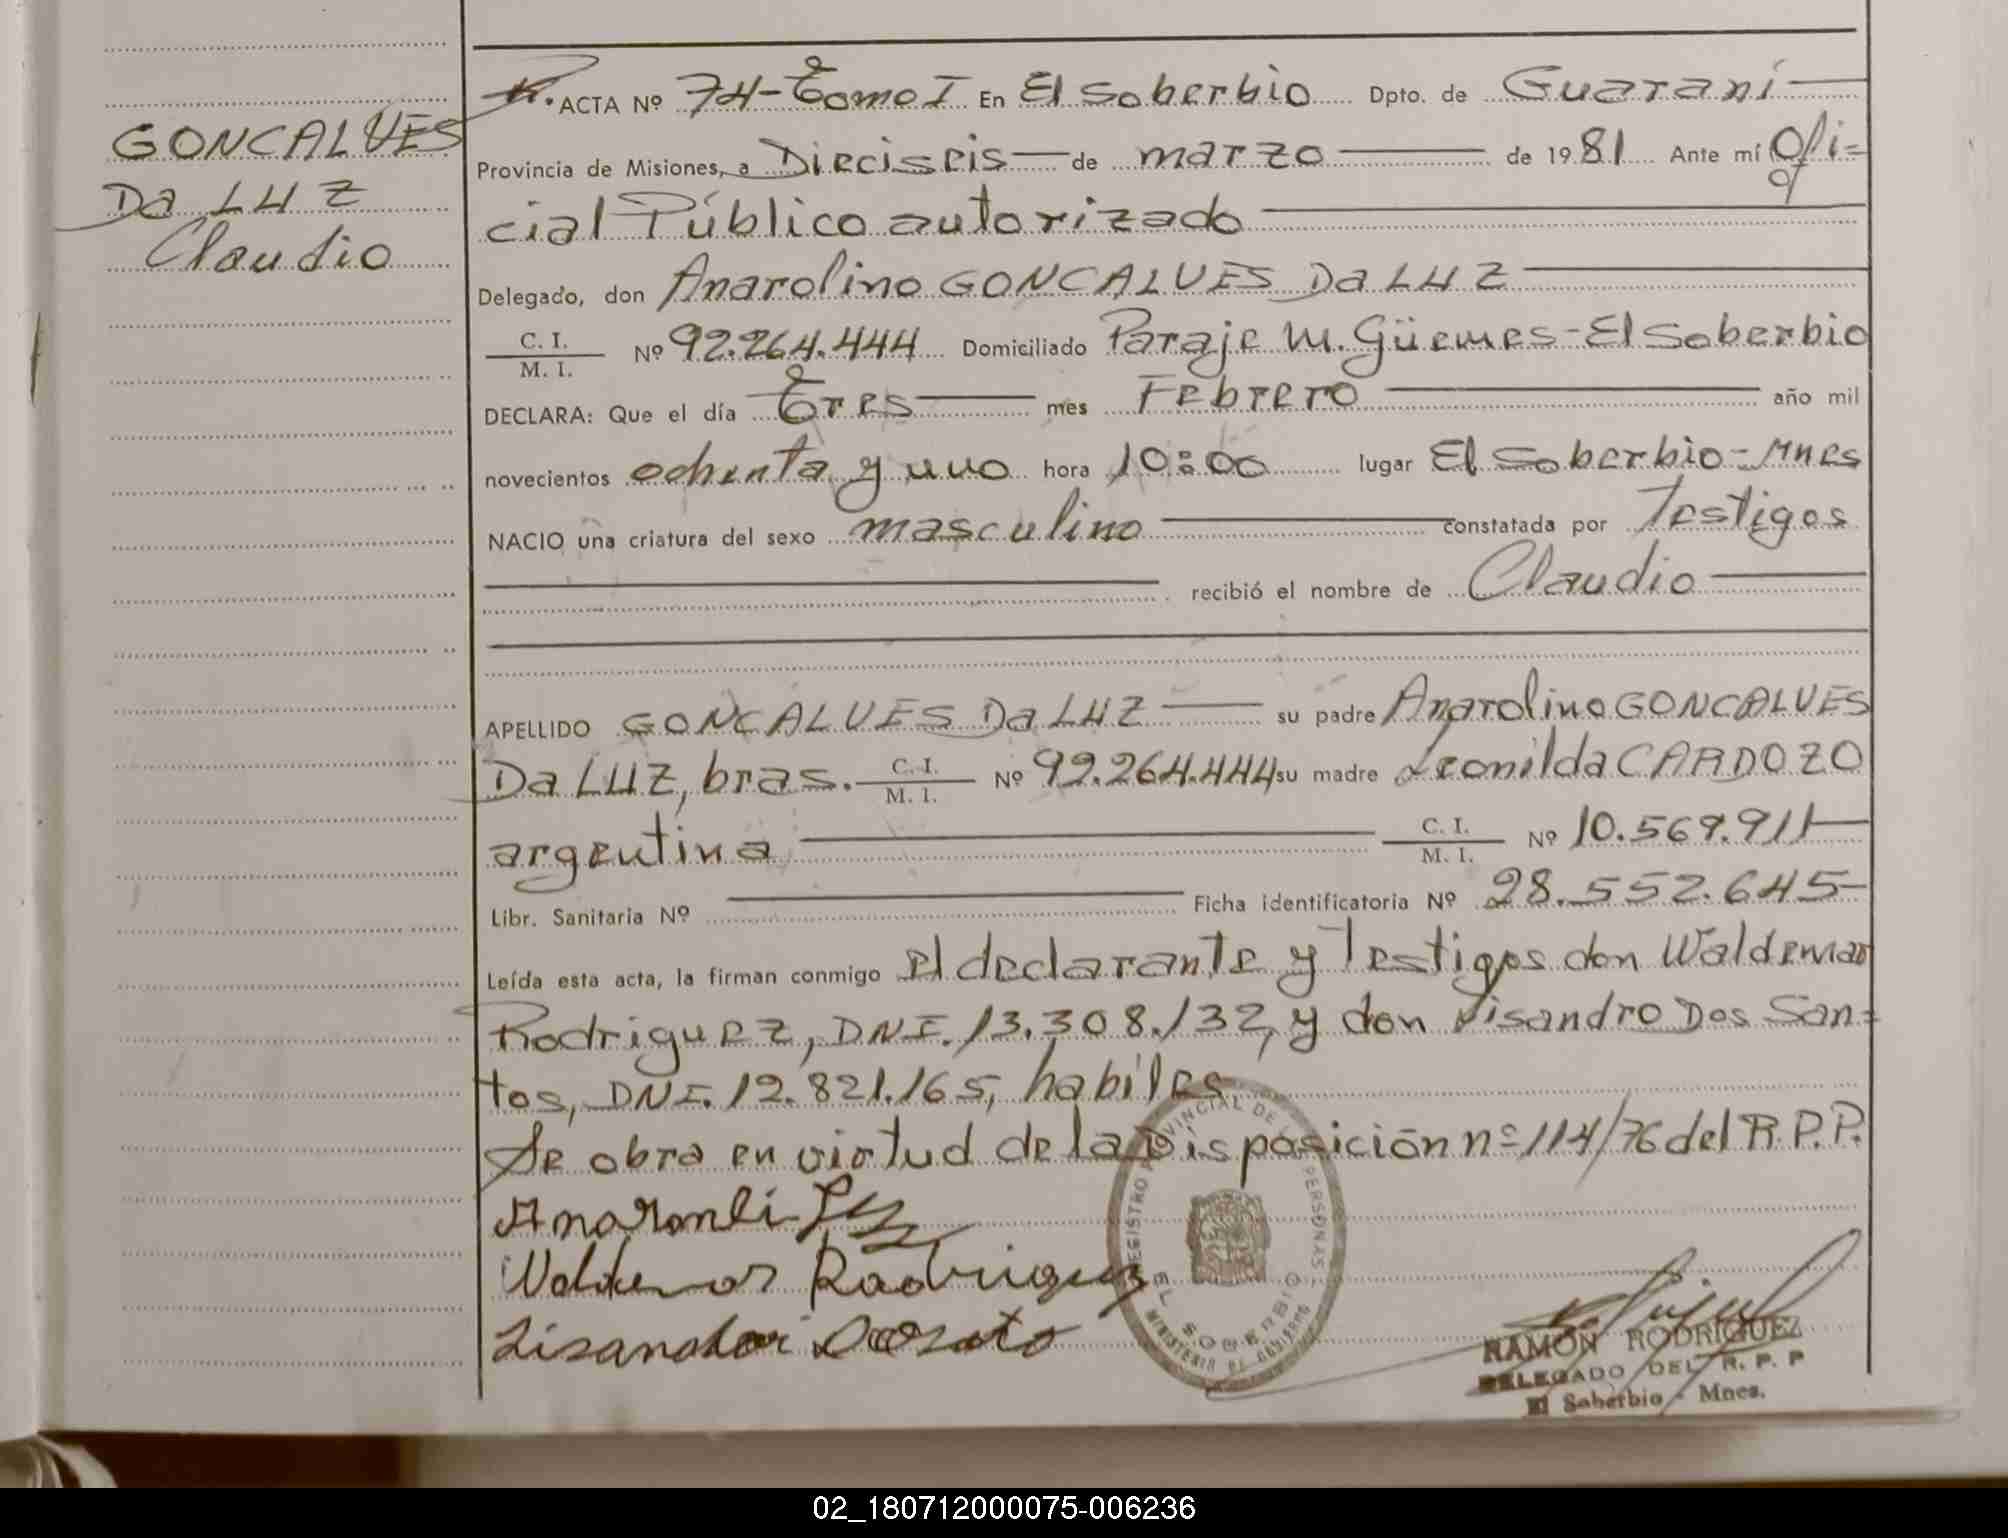 GONCALVES
Da LUZ
Claudio
R. ACTA Nº 74-Tomo I En El Soberbio Dpto. de Guaraní
Provincia de Misiones, a Dieciseis de marzo de 1981 Ante mí Ofi=
cial Público autorizado
Delegado, don Anarolino GONCALVES Da LUZ
C. I.
M. I.
Nº 92.264.444 Domiciliado Paraje M. Güemes - El Soberbio
DECLARA: Que el día Tres mes Febrero año mil
novecientos ochenta y uno hora 10:00 lugar El Soberbio - Mnes
NACIO una criatura del sexo masculino constatada por Testigos
recibió el nombre de Claudio
APELLIDO GONCALVES Da LUZ su padre Anarolino GONCALVES
Da LUZ, bras. C. I. M. I. Nº 92.264.444 su madre Leonilda CARDOZO
argentina C. I. M. I. Nº 10.569.911
Libr. Sanitaria Nº Ficha identificatoria Nº 28.552.645-
Leída esta acta, la firman conmigo el declarante y Testigos don Waldemar
Rodriguez, DNI. 13.308.132, y don Lisandro Dos San=
tos, DNI. 12.821.165, habiles
Se obra en virtud de la Disposición nº 114/76 del R.P.P.
Waldemar Rodriguez
REGISTRO PROVINCIAL DE LAS PERSONAS
EL SOBERBIO
MINISTERIO DE GOBIERNO
RAMON RODRIGUEZ
DELEGADO DEL R. P. P
El Soberbio - Mnes.
02_180712000075-006236